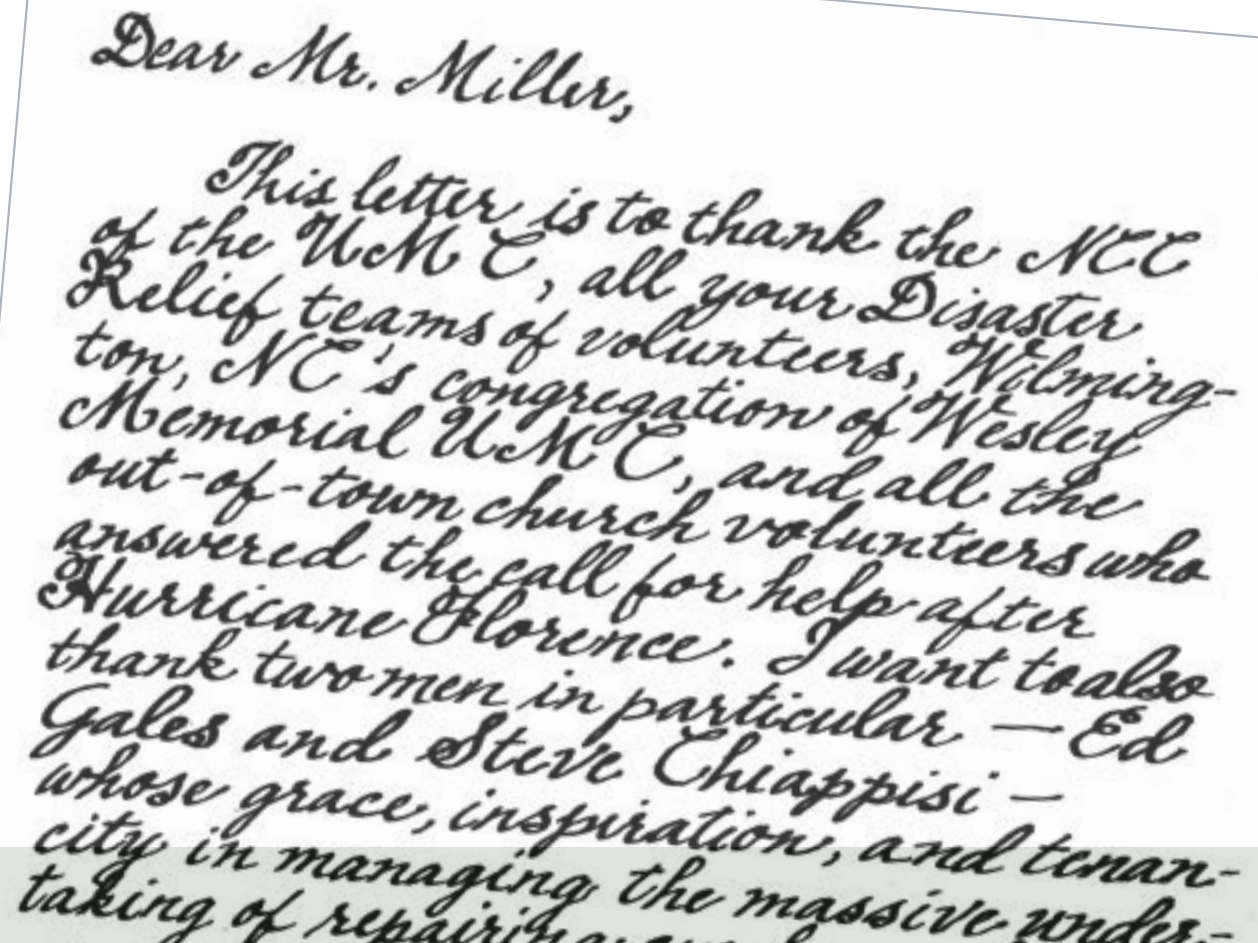 Dear Mr. Miller,
This letter is to thank the NCC
of the UMC, all your Disaster
Relief teams of volunteers, Wilming-
ton, NC's congregation of Wesley
Memorial UMC, and all the
out-of-town church volunteers who
answered the call for help after
Hurricane Florence. I want to also
thank two men in particular — Ed
Gales and Steve Chiappisi —
whose grace, inspiration, and tenan-
city in managing the massive under-
taking of repairing